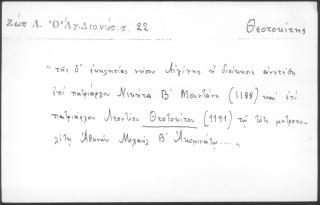 Ζώη Λ. Ὁ Ἅγ. Διονύσ. σ. 22
Θεοτοκίτης
"τῆς δ' ἐκκλησίας νήσου Αἰγίνης ἡ διοίκησις ἀνετέθη
ἐπὶ πατριάρχου Νικήτα Β' Μουντάνη (1188) καὶ ἐπὶ
πατριάρχου Λεοντίου Θεοτοκίτου (1191) τῷ τότε μητροπο-
λίτῃ Ἀθηνῶν Μιχαὴλ Β' Ἀκομινάτῳ....."